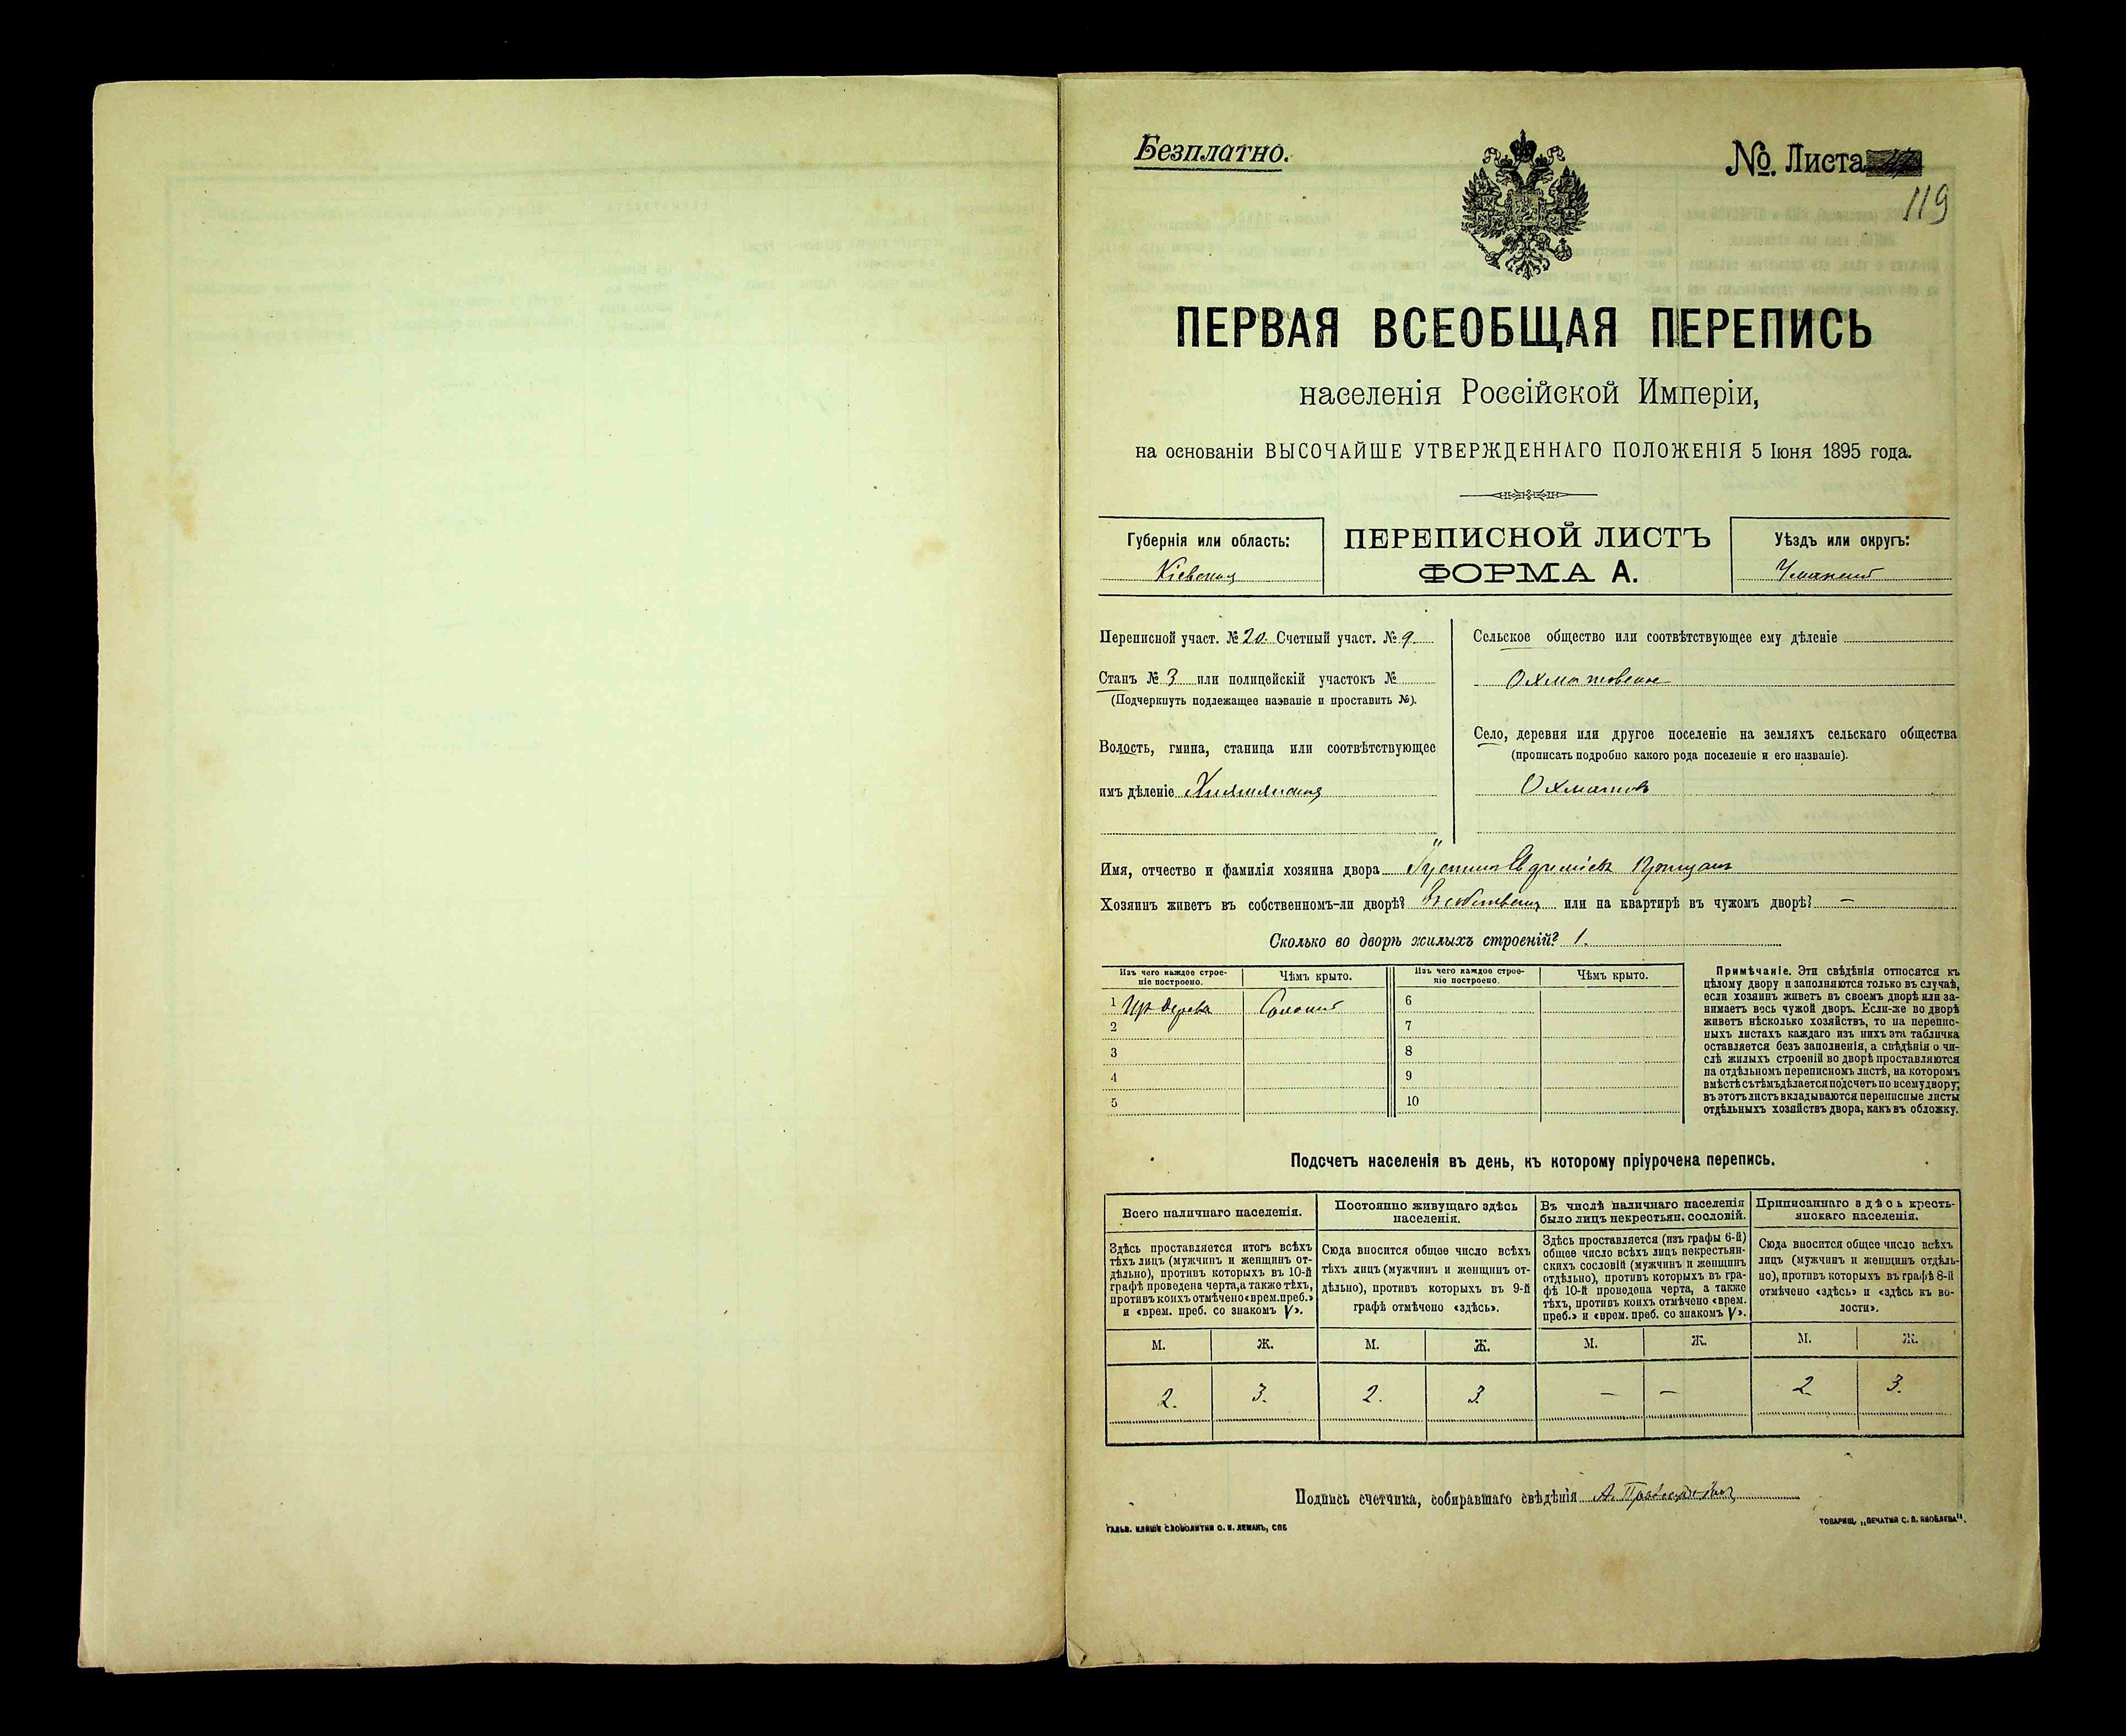 Безплатно.
№. Листа
119
ПЕРВАЯ ВСЕОБЩАЯ ПЕРЕПИСЬ
населенія Россійской Имперіи,
на основаніи ВЫСОЧАЙШЕ УТВЕРЖДЕННАГО ПОЛОЖЕНІЯ 5 Іюня 1895 года.
Губернія или область:
Кіевская
ПЕРЕПИСНОЙ ЛИСТЪ
ФОРМА А.
Уѣздъ или округъ:
Уманскій
Переписной участ. № 20. Счетный участ. № 9
Станъ № 3 или полицейскій участокъ №
(Подчеркнуть подлежащее названіе и проставить №).
Волость, гмина, станица или соотвѣтствующее
имъ дѣленіе
Сельское общество или соотвѣтствующее ему дѣленіе
Охматовское
Село, деревня или другое поселеніе на земляхъ сельскаго общества
(прописать подробно какого рода поселеніе и его названіе).
Охматовъ
Имя, отчество и фамилія хозяина двора
Хозяинъ живетъ въ собственномъ-ли дворѣ? или на квартирѣ въ чужомъ дворѣ? —
Сколько во дворѣ жилыхъ строеній? 1.
Изъ чего каждое строе-
ніе построено.
Чѣмъ крыто.
Изъ чего каждое строе-
ніе построено.
Чѣмъ крыто.
1 Изъ дерева Соломой 6
2 7
3 8
4 9
5 10
Примѣчаніе. Эти свѣдѣнія относятся къ
цѣлому двору и заполняются только въ случаѣ,
если хозяинъ живетъ въ своемъ дворѣ или за-
нимаетъ весь чужой дворъ. Если-же во дворѣ
живетъ нѣсколько хозяйствъ, то на перепис-
ныхъ листахъ каждаго изъ нихъ эта табличка
оставляется безъ заполненія, а свѣдѣнія о чи-
слѣ жилыхъ строеній во дворѣ проставляются
на отдѣльномъ переписномъ листѣ, на которомъ
вмѣстѣ съ тѣмъ дѣлается подсчетъ по всему двору;
въ этотъ листъ вкладываются переписные листы
отдѣльныхъ хозяйствъ двора, какъ въ обложку.
Подсчетъ населенія въ день, къ которому пріурочена перепись.
Всего наличнаго населенія.
Здѣсь проставляется итогъ всѣхъ
тѣхъ лицъ (мужчинъ и женщинъ от-
дѣльно), противъ которыхъ въ 10-й
графѣ проведена черта, а также тѣхъ,
противъ коихъ отмѣчено «врем. преб.»
и «врем. преб. со знакомъ V».
Постоянно живущаго здѣсь
населенія.
Сюда вносится общее число всѣхъ
тѣхъ лицъ (мужчинъ и женщинъ от-
дѣльно), противъ которыхъ въ 9-й
графѣ отмѣчено «здѣсь».
Въ числѣ наличнаго населенія
было лицъ некрестьян. сословій.
Здѣсь проставляется (изъ графы 6-й)
общее число всѣхъ лицъ некрестьян-
скихъ сословій (мужчинъ и женщинъ
отдѣльно), противъ которыхъ въ гра-
фѣ 10-й проведена черта, а также
тѣхъ, противъ коихъ отмѣчено «врем.
преб.» и «врем. преб. со знакомъ V».
Приписаннаго здѣсь кресть-
янскаго населенія.
Сюда вносится общее число всѣхъ
лицъ (мужчинъ и женщинъ отдѣль-
но), противъ которыхъ въ графѣ 8-й
отмѣчено «здѣсь» и «здѣсь къ во-
лости».
М. Ж. М. Ж. М. Ж. М. Ж.
2. 3. 2. 3. — — 2. 3.
Подпись счетчика, собиравшаго свѣдѣнія
ГАЛЬВ. КЛИШЕ СЛОВОЛИТНИ О. И. ЛЕМАНЪ, СПБ
ТОВАРИЩ. „ПЕЧАТНЯ С. П. ЯКОВЛЕВА".